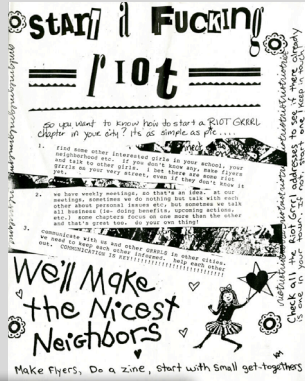 START A FUCKING
RIOT
SO you want to know how do start a RIOT GRRRL
chapter in your city? it's as simple as pie....
1. find some other interested girls in your school, your
neighborhood etc. if you don't know any, make flyers
and talk to other girls. i bet there are some riot
grrrls on your very street, even if they don't know it
yet.
2. we have weekly meetings, so that's an idea. at our
meetings, sometimes we do nothing but talk with each
other about personal issues etc, but sometimes we talk
all business (ie- doing benefits, upcoming actions,
etc.) some chapters focus on one more than the other
and that's great too. do your own thing!
3. communicate with us and other GRRRLS in other cities.
we need to keep each other informed. help each other
out. COMMUNICATION IS KEY!!!!!!!
We'll Make
the Nicest
Neighbors
Make Flyers, Do a zine, start with small get-togethers
Check all the Riot Grrrl addresses to see if there already
is one in your town. If not, start one & keep in touch